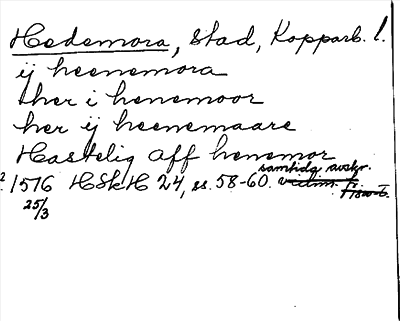 Hedemora, stad, Kopparb. l.
ij heenemora
ther i henemoor
her ij heenemaare
Hastelig aff henemor
samtida avskr.
1576 HSkH 24, ss. 58-60.
25/3